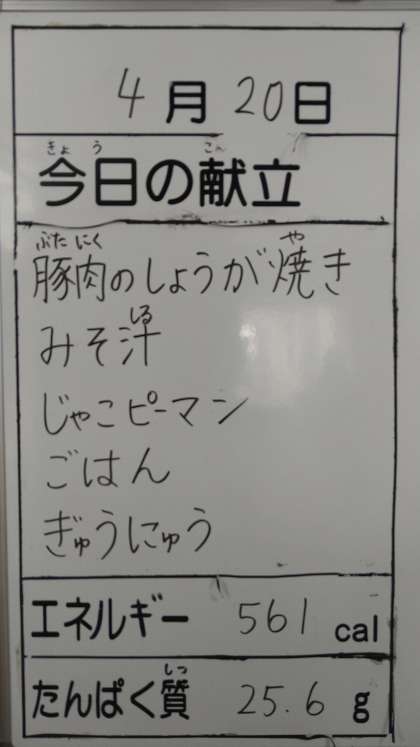 4月20日
きょう こん
今日の献立
ぶたにく や
豚肉のしょうが焼き
しる
みそ汁
じゃこピーマン
ごはん
ぎゅうにゅう
エネルギー 561 cal
しつ
たんぱく質 25.6 g